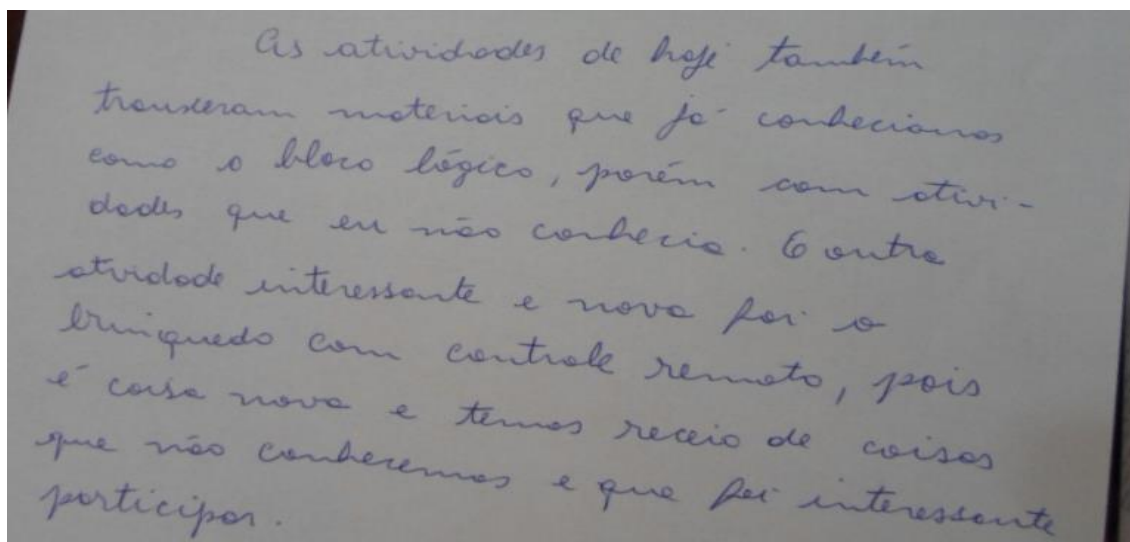 As atividades de hoje também
trouxeram materiais que já conhecíamos
como o bloco lógico, porém com ativi-
dades que eu não conhecia. E outra
atividade interessante e nova foi o
brinquedo com controle remoto, pois
é coisa nova e temos receio de coisas
que não conhecemos e que foi interessante
participar.